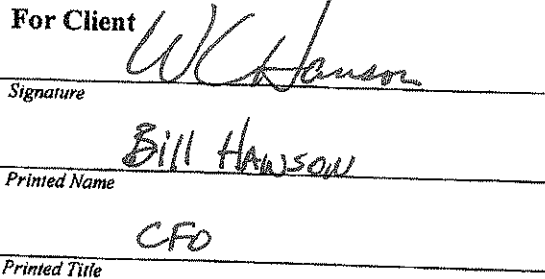 For Client
WC Hanson
Signature
Bill Hanson
Printed Name
CFO
Printed Title